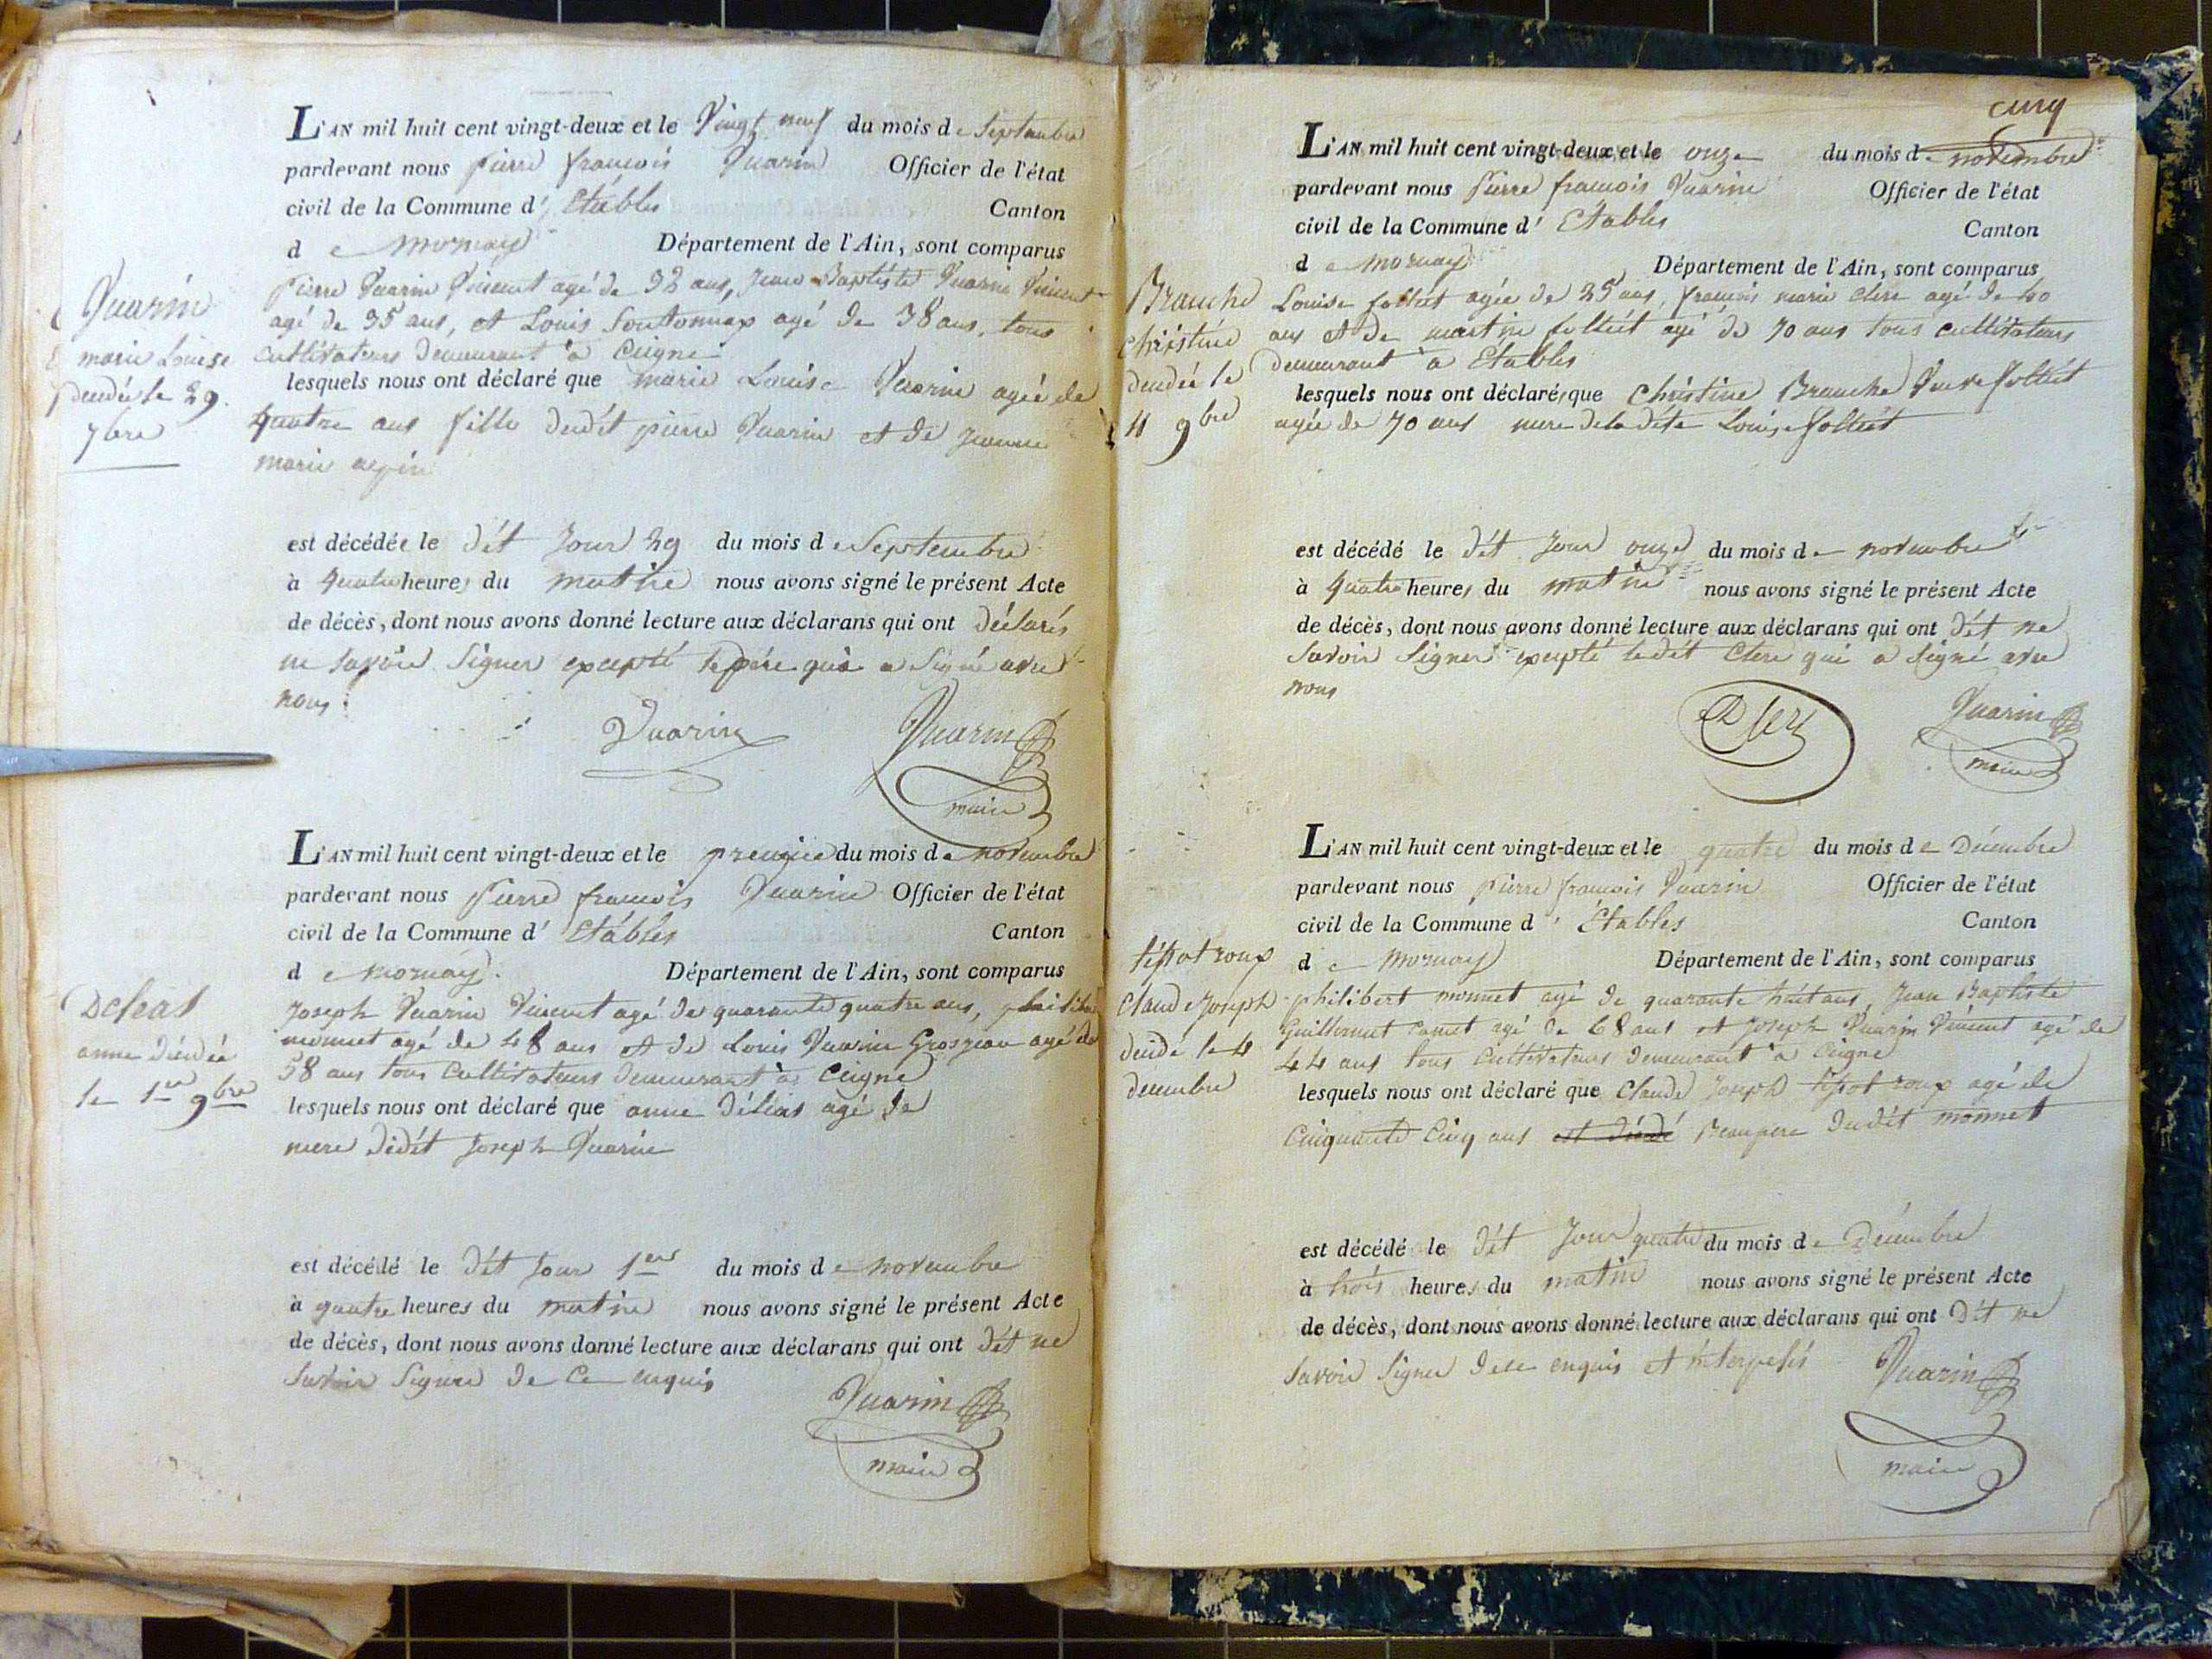 L'AN mil huit cent vingt-deux et le Vingt neuf du mois de Septembre
pardevant nous pierre françois Vuarin Officier de l'état
civil de la Commune d' Etables Canton
d e mornay Département de l'Ain, sont comparus
Pierre Vuarin Vincent agé de 32 ans, Jean Baptiste Vuarin Vincent
agé de 35 ans, et Louis Soutonnax agé de 38 ans, tous
cultivateurs demeurant à Ceigne
Vuarin
marie Louise
dcudée le 29
7bre
lesquels nous ont déclaré que marie Louise Vuarin agée de
quatre ans fille dudit pierre Vuarin et de Jeanne
marie
est décédée le dét Jour 29 du mois de Septembre
à quatre heures du matin nous avons signé le présent Acte
de décès, dont nous avons donné lecture aux déclarans qui ont déclarés
ne savoir signer excepté le père qui a signé avec
nous
Vuarin Vuarin
maire
L'AN mil huit cent vingt-deux et le premier du mois de novembre
pardevant nous Pierre françois Vuarin Officier de l'état
civil de la Commune d' Etables Canton
d e Mornay Département de l'Ain, sont comparus
Deleas
anne déidée
le 1er 9bre
Joseph Vuarin Vincent agé de quarante quatre ans, philibert
monnet agé de 48 ans et de Louis Vuarin Grosjean agé de
58 ans tous cultivateurs demeurant à Ceigne
lesquels nous ont déclaré que anne Déleas agé de
mere dédét Joseph Vuarin
est décédé le dét Jour 1er du mois de novembre
à quatre heures du matin nous avons signé le présent Acte
de décès, dont nous avons donné lecture aux déclarans qui ont dét ne
savoir signer de ce enquis
Vuarin
maire
cinq
L'AN mil huit cent vingt-deux et le onze du mois de novembre
pardevant nous Pierre françois Vuarin Officier de l'état
civil de la Commune d' Etables Canton
d e mornay Département de l'Ain, sont comparus
Branche
christine
dcudée le
11 9bre
Louise folliet agée de 25 ans, françois marie clerc agé de 40
ans et de martin folliet agé de 70 ans tous cultivateurs
demeurant à Etables
lesquels nous ont déclaré que Christine Branche Veuve folliet
agée de 70 ans mere de la déte Louise folliet
est décédé le dét Jour onze du mois de novembre
à quatre heures du matin nous avons signé le présent Acte
de décès, dont nous avons donné lecture aux déclarans qui ont dét ne
savoir signer excepté ledét Clerc qui a signé avec
nous
Clerc Vuarin
maire
L'AN mil huit cent vingt-deux et le quatre du mois de Décembre
pardevant nous pierre françois Vuarin Officier de l'état
civil de la Commune d' Etables Canton
d e Mornay Département de l'Ain, sont comparus
tépot roux
Claude Joseph
deidé le 4
decembre
philibert monnet agé de quarante huit ans, Jean Baptiste
Guillermet agé de 68 ans et Joseph Vuarin Vincent agé de
44 ans tous cultivateurs demeurant à Ceigne
lesquels nous ont déclaré que Claude Joseph tépot roux agé de
Cinquante Cinq ans est décédé Beaupere dudit monnet
est décédé le dét Jour quatre du mois de Décembre
à trois heures du matin nous avons signé le présent Acte
de décès, dont nous avons donné lecture aux déclarans qui ont dét ne
savoir signer de ce enquis et interpelés Vuarin
maire